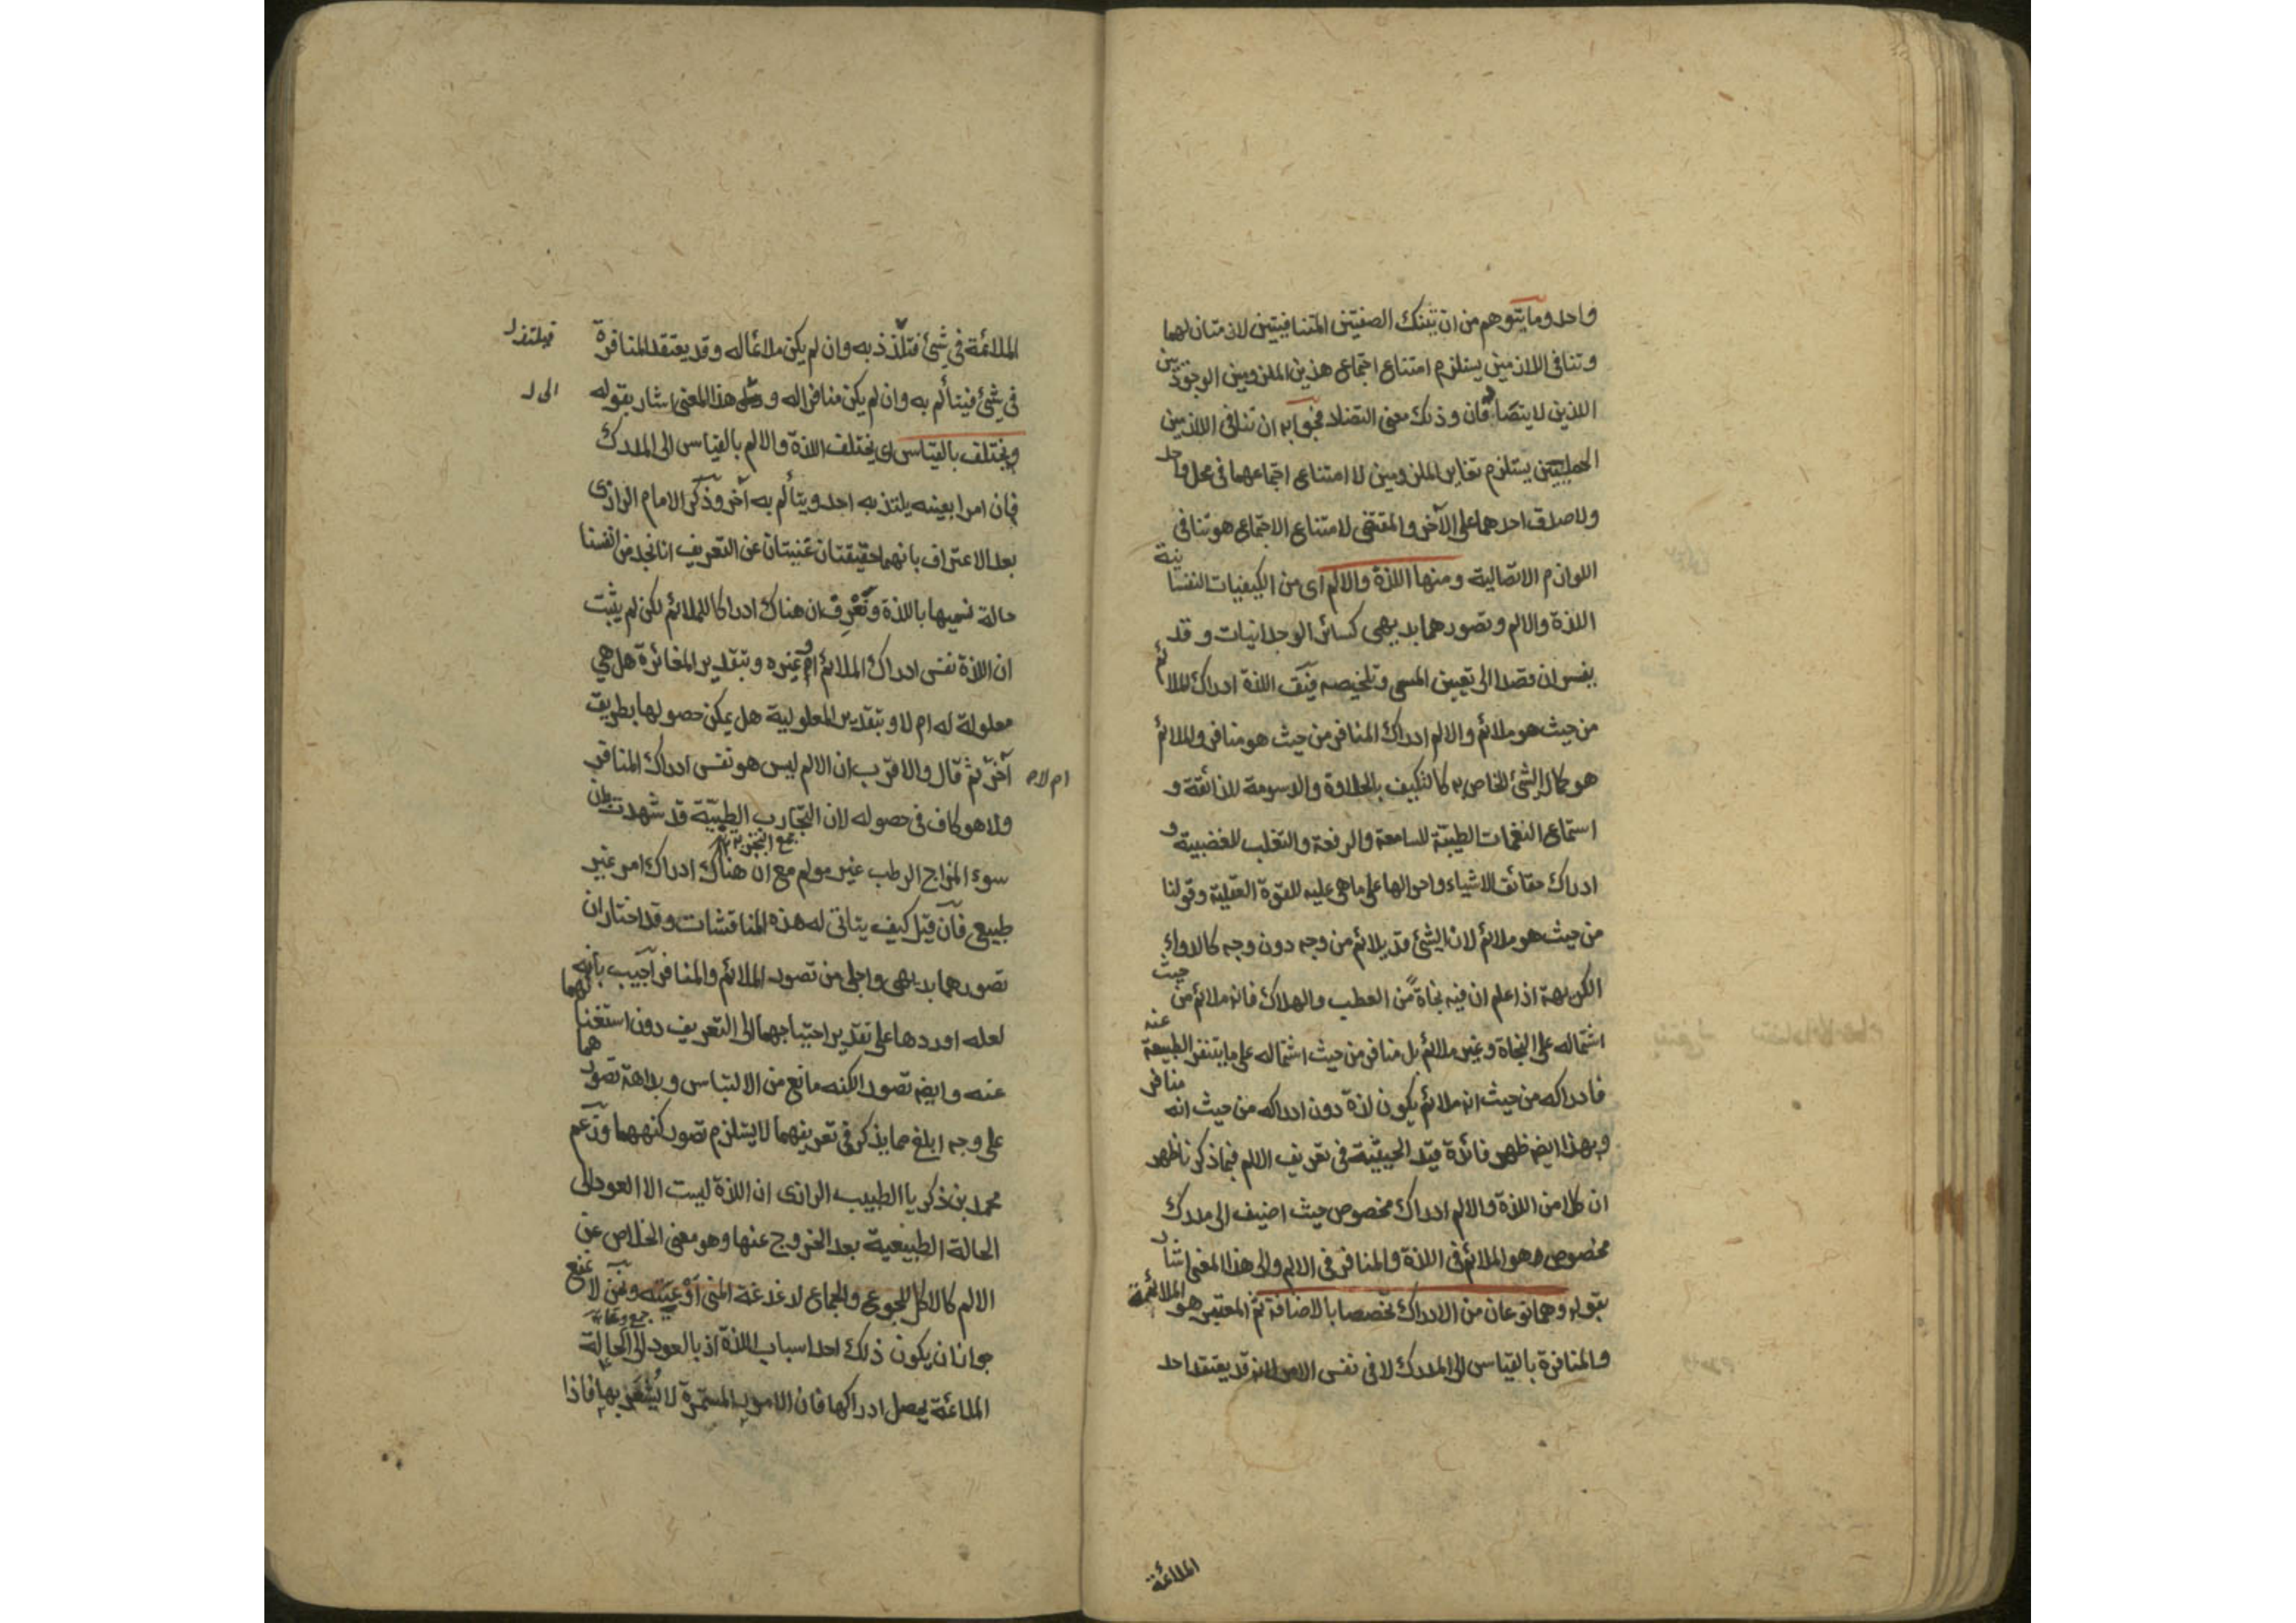 واحد وما يتوهم من ان تينك الصفتين المتنافيتين لازمتان لهما
وتنافى اللازمين يستلزم امتناع اجتماع هذين الملزومين الوجوديين
اللذين لا يتضايفان وذلك معنى التضاد فجوابه ان تنافى اللازمين
الحمليتين يستلزم تغاير الملزومين لا امتناع اجتماعهما فى محل واحد
ولا صدق احدهما على الآخر والمقتضى لامتناع الاجتماع هو تنافى
اللوازم الاتصالية ومنها اللذة والالم اى من الكيفيات النفسانية
اللذة والالم وتصورهما بديهى كسائر الوجدانيات وقد
يفسران قصدا الى تعيين المسمى وتلخيصه فيق اللذة ادراك الملائم
من حيث هو ملائم والالم ادراك المنافر من حيث هو منافر والملائم
هو كمال الشئ الخاص به كالتكيف بالحلاوة والدسومة للذائقة و
استماع النغمات الطيبة للسامعة والرفعة والتغلب للغضبية و
ادراك حقائق الاشياء واحوالها على ما هى عليه للقوة العقلية وقولنا
من حيث هو ملائم لان الشئ قد يلائم من وجه دون وجه كالدواء
الكريهة اذا علم ان فيه نجاة من العطب والهلاك فانه ملائم من حيث
اشتماله على النجاة وغير ملائم بل منافر من حيث اشتماله على ما يتنفر الطبيعة عنه
فادراكه من حيث انه ملائم يكون لذة دون ادراكه من حيث انه منافر
وبهذا ايضا ظهر فائدة قيد الحيثية فى تعريف الالم فبما ذكرنا ظهر
ان كلا من اللذة والالم ادراك مخصوص حيث اضيف الى مدرك
مخصوص هو الملائم فى اللذة والمنافر فى الالم والى هذا المعنى اشار
بقوله وهما نوعان من الادراك تخصصا بالاضافة ثم المعتبر هو الملائمة
والمنافرة بالقياس الى المدرك لا فى نفس الامر لانه قد يعتقد احد
الملائمة
الملائمة فى شئ فتلذذ به وان لم يكن ملائما له وقد يعتقد المنافرة
فيلتذ
فى شئ فيتألم به وان لم يكن منافرا له و هذا المعنى اشار بقوله
الى
ويختلف بالقياس اى يختلف اللذة والالم بالقياس الى المدرك
فان امرا بعينه يلتذ به احد ويتألم به آخر وذكر الامام الرازى
بعد الاعتراف بانهما حقيقتان غنيتان عن التعريف انا نجد من انفسنا
حالة نسميها باللذة ونعرف ان هناك ادراكا للملائم لكن لم يثبت
ان اللذة نفس ادراك الملائم ام غيره وبتقدير المغائرة هل هى
معلولة له ام لا وبتقدير المعلولية هل يمكن حصولها بطريق
آخر ثم قال والاقرب ان الالم ليس هو نفس ادراك المنافر
ام لا
ولا هو كاف فى حصوله لان التجارب الطبية قد شهدت بان
سوء المزاج الرطب غير مولم مع ان هناك ادراك امر غير
طبيعى فان قيل كيف يتاتى له هذه المناقشات وقد اختار ان
تصورهما بديهى واجلى من تصور الملائم والمنافر اجيب بانه
لعله اوردها على تقدير احتياجهما الى التعريف دون استغنائهما
عنه وايضا تصور الكنه مانع من الالتباس وبداهة تصورهما
على وجه ابلغ مما يذكر فى تعريفهما لا يستلزم تصور كنههما وزعم
محمد بن زكريا الطبيب الرازى ان اللذة ليست الا العود الى
الحالة الطبيعية بعد الخروج عنها وهو معنى الخلاص عن
الالم كالاكل للجوع والجماع لدغدغة المنى اوعيته ونحن لا نمنع
جمع وعاء
جواز ان يكون ذلك احد اسباب اللذة اذ بالعود الى الحالة
الملائمة يحصل ادراكها فان الامور المستمرة لا يشعر بها فاذا